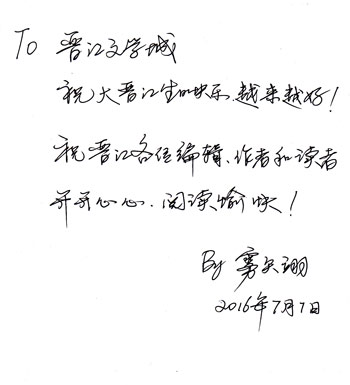 To 晋江文学城
祝大晋江生日快乐,越来越好!
祝晋江各位编辑、作者和读者
开开心心、阅读愉快!
By 雾矢翊
2016年7月7日